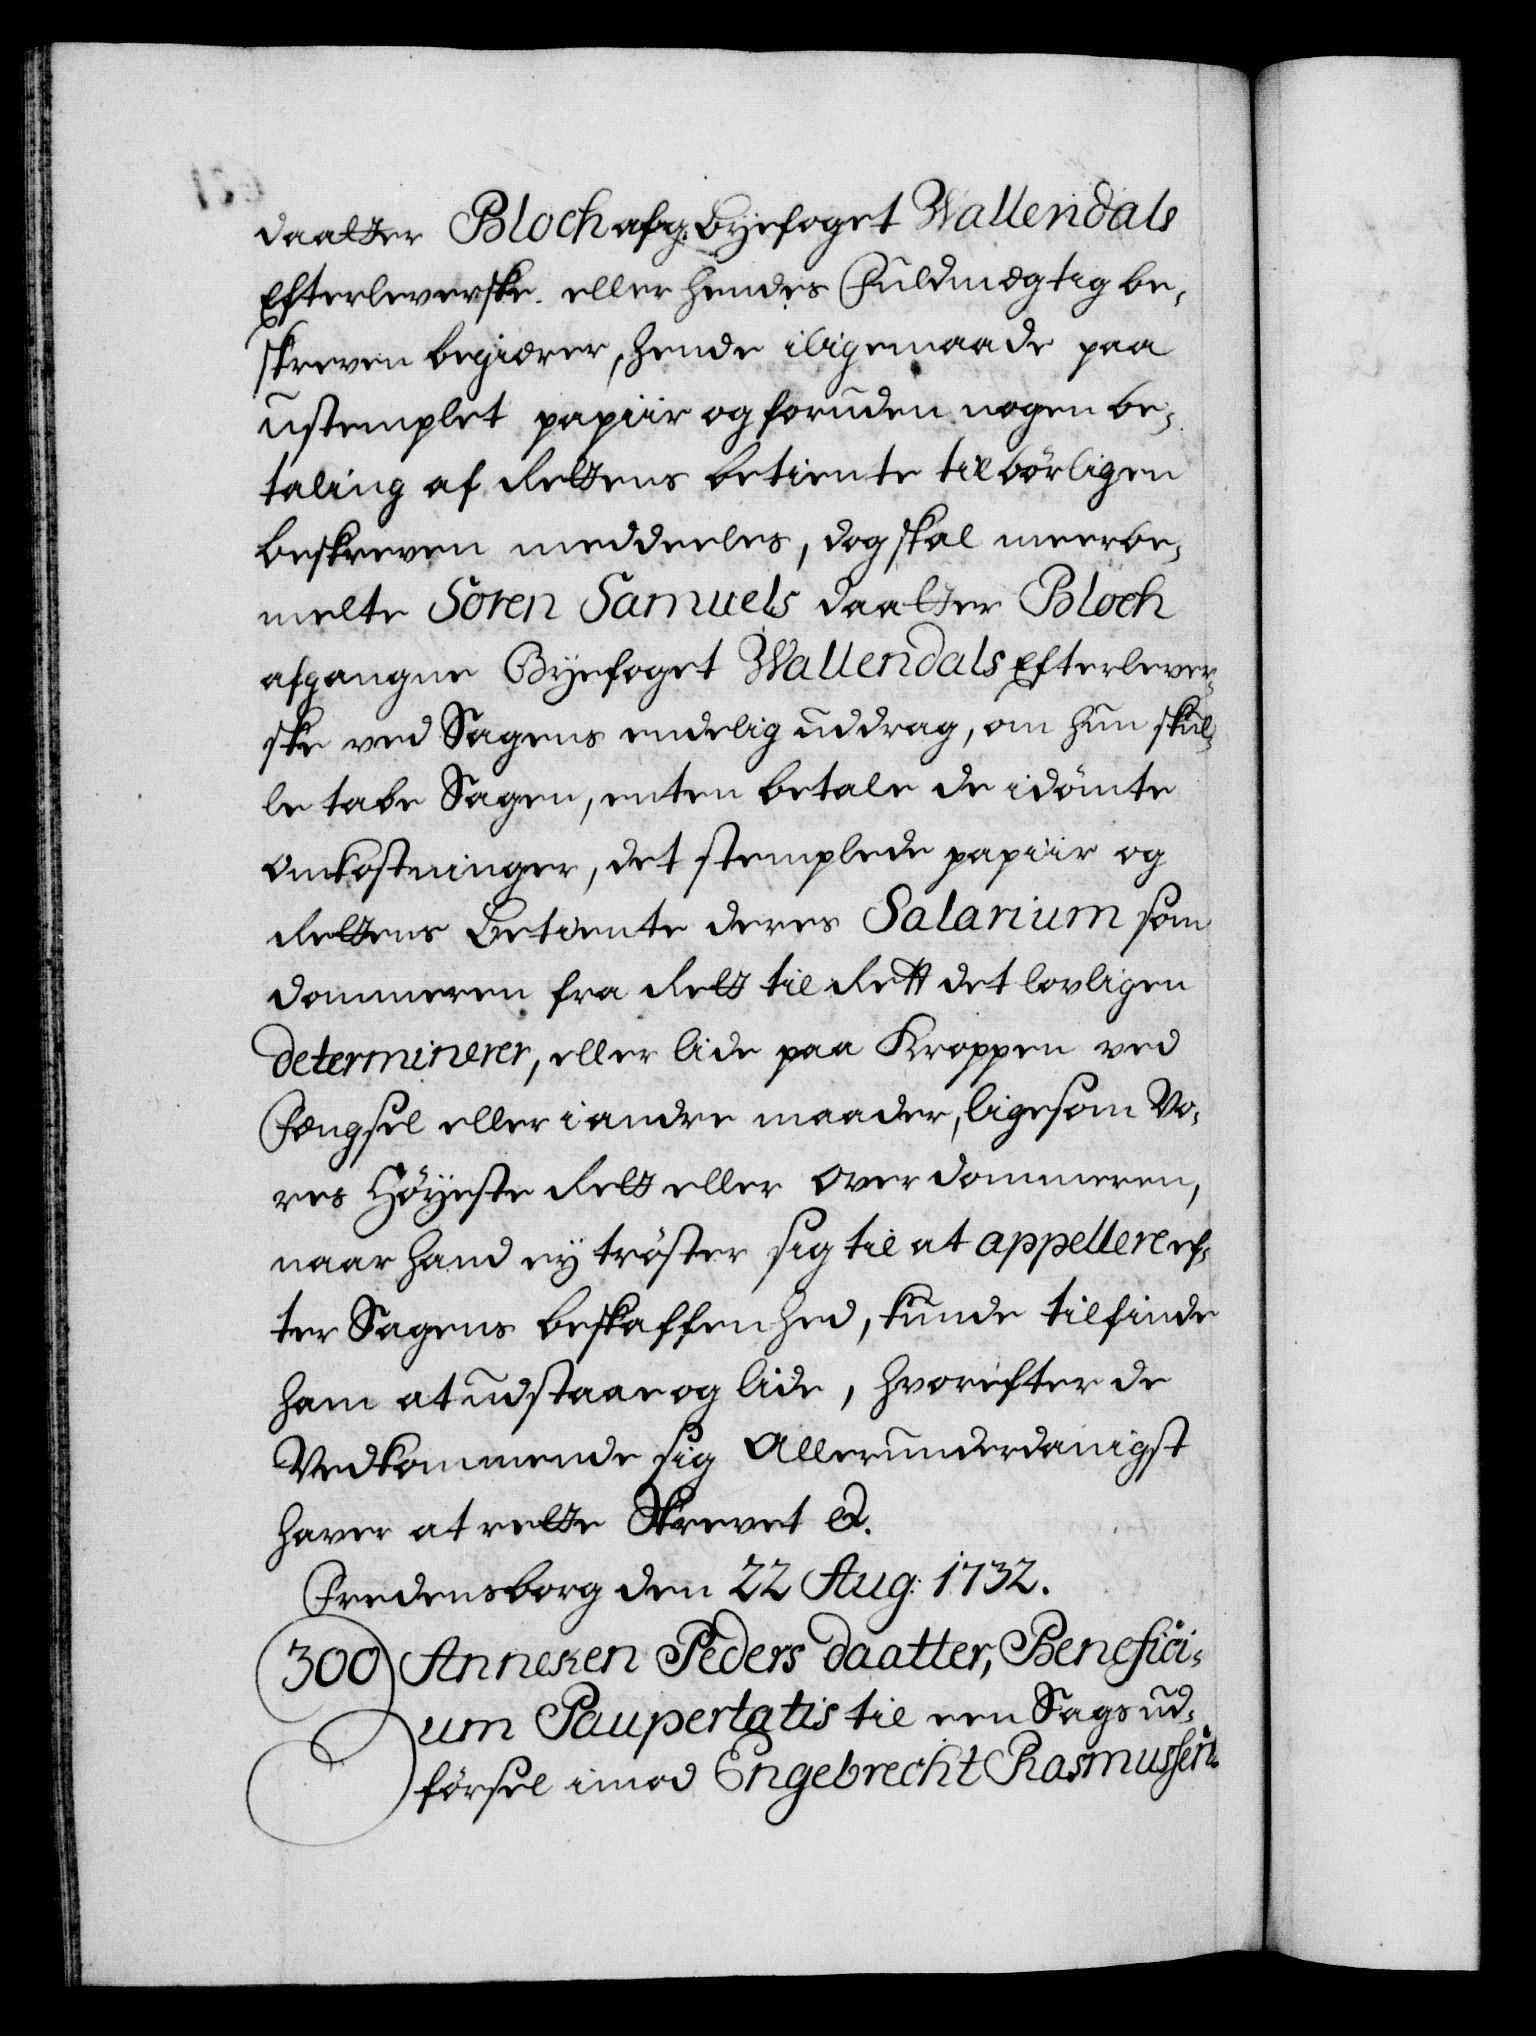 daatter Bloch afg. Byefoget Wallendals
Efterleverske eller hendes Fuldmegtig be-
skreven begiærer, hende iligemaade paa
ustemplet papiir og foruden nogen be-
taling af Rettens betiente tilbörligen
beskreven meddeeles, dog skal meerbe-
melte Sören Samuels daatter Bloch
afgangne Byefoget Wallendals Efterlever-
ske ved Sagens endelig uddrag, om hun skul-
le tabe Sagen, enten betale de idömte
Omkostninger, det stemplede papiir og
Rettens Betiente deres Salarium som
dommeren fra Rett til Rett det lovligen
determinerer, eller lide paa Kroppen ved
Fængsel eller i andre maader, ligesom Vo-
res Höyeste Rett eller Over dommeren,
naar hand ey tröster sig til at appellere ef-
ter Sagens beskaffenhed, kunde tilfinde
ham at udstaae og lide, hvorefter de
Vedkommende sig Allerunderdanigst
haver at rette Skrevet &.
Fredensborg den 22 Aug: 1732.
300 Anneken Peders daatter, Benefici-
um Paupertatis til een Sags ud-
försel imod Engebrecht Rasmussen.